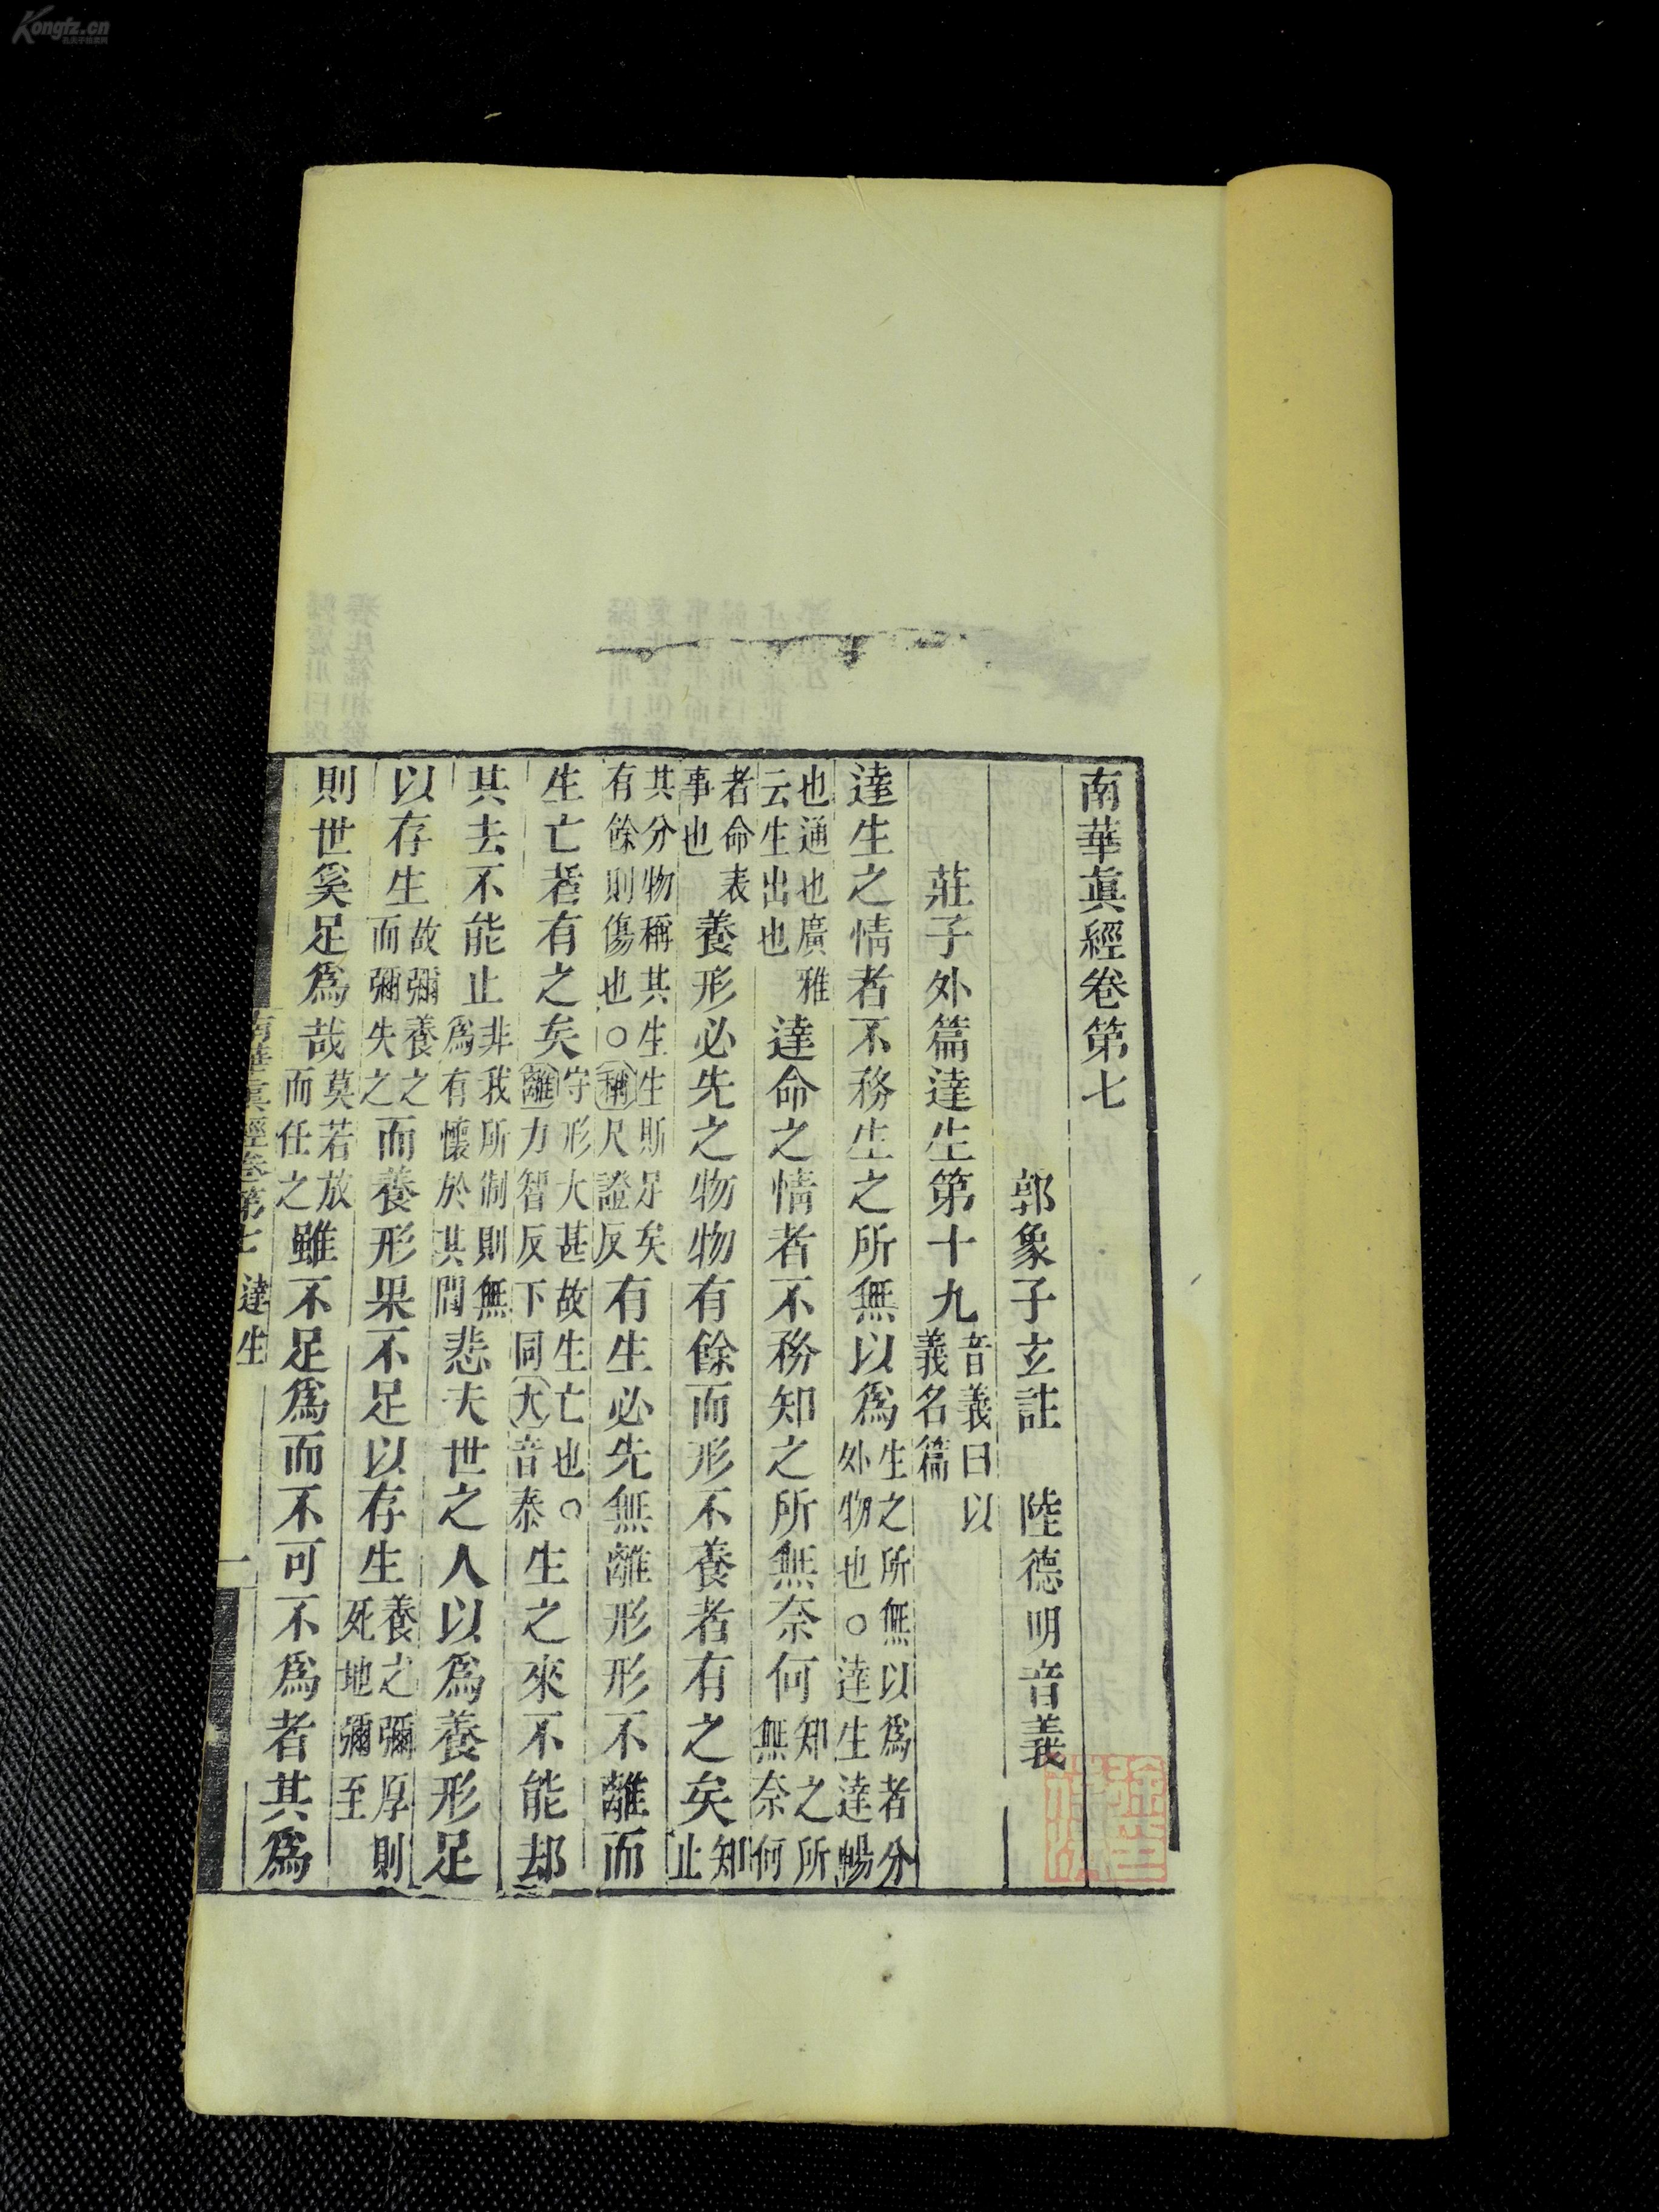 Kongfz.cn
南華眞經卷第七
郭象子玄註　陸德明音義
莊子外篇達生第十九音義曰以義名篇
達生之情者不務生之所無以爲生之所無以爲者分外物也○達生達暢
也通也廣雅云生出也達命之情者不務知之所無奈何知之所無奈何
者命表事也養形必先之物物有餘而形不養者有之矣知止
其分物稱其生生斯足矣有餘則傷也○稱尺證反有生必先無離形形不離而
生亡者有之矣守形大甚故生亡也○離力智反下同大音泰生之來不能却
其去不能止非我所制則無爲有懷於其間悲夫世之人以爲養形足
以存生故彌養之而彌失之而養形果不足以存生養之彌厚則死地彌至
則世奚足爲哉莫若放而任之雖不足爲而不可不爲者其爲
南華眞經卷第七　達生　一